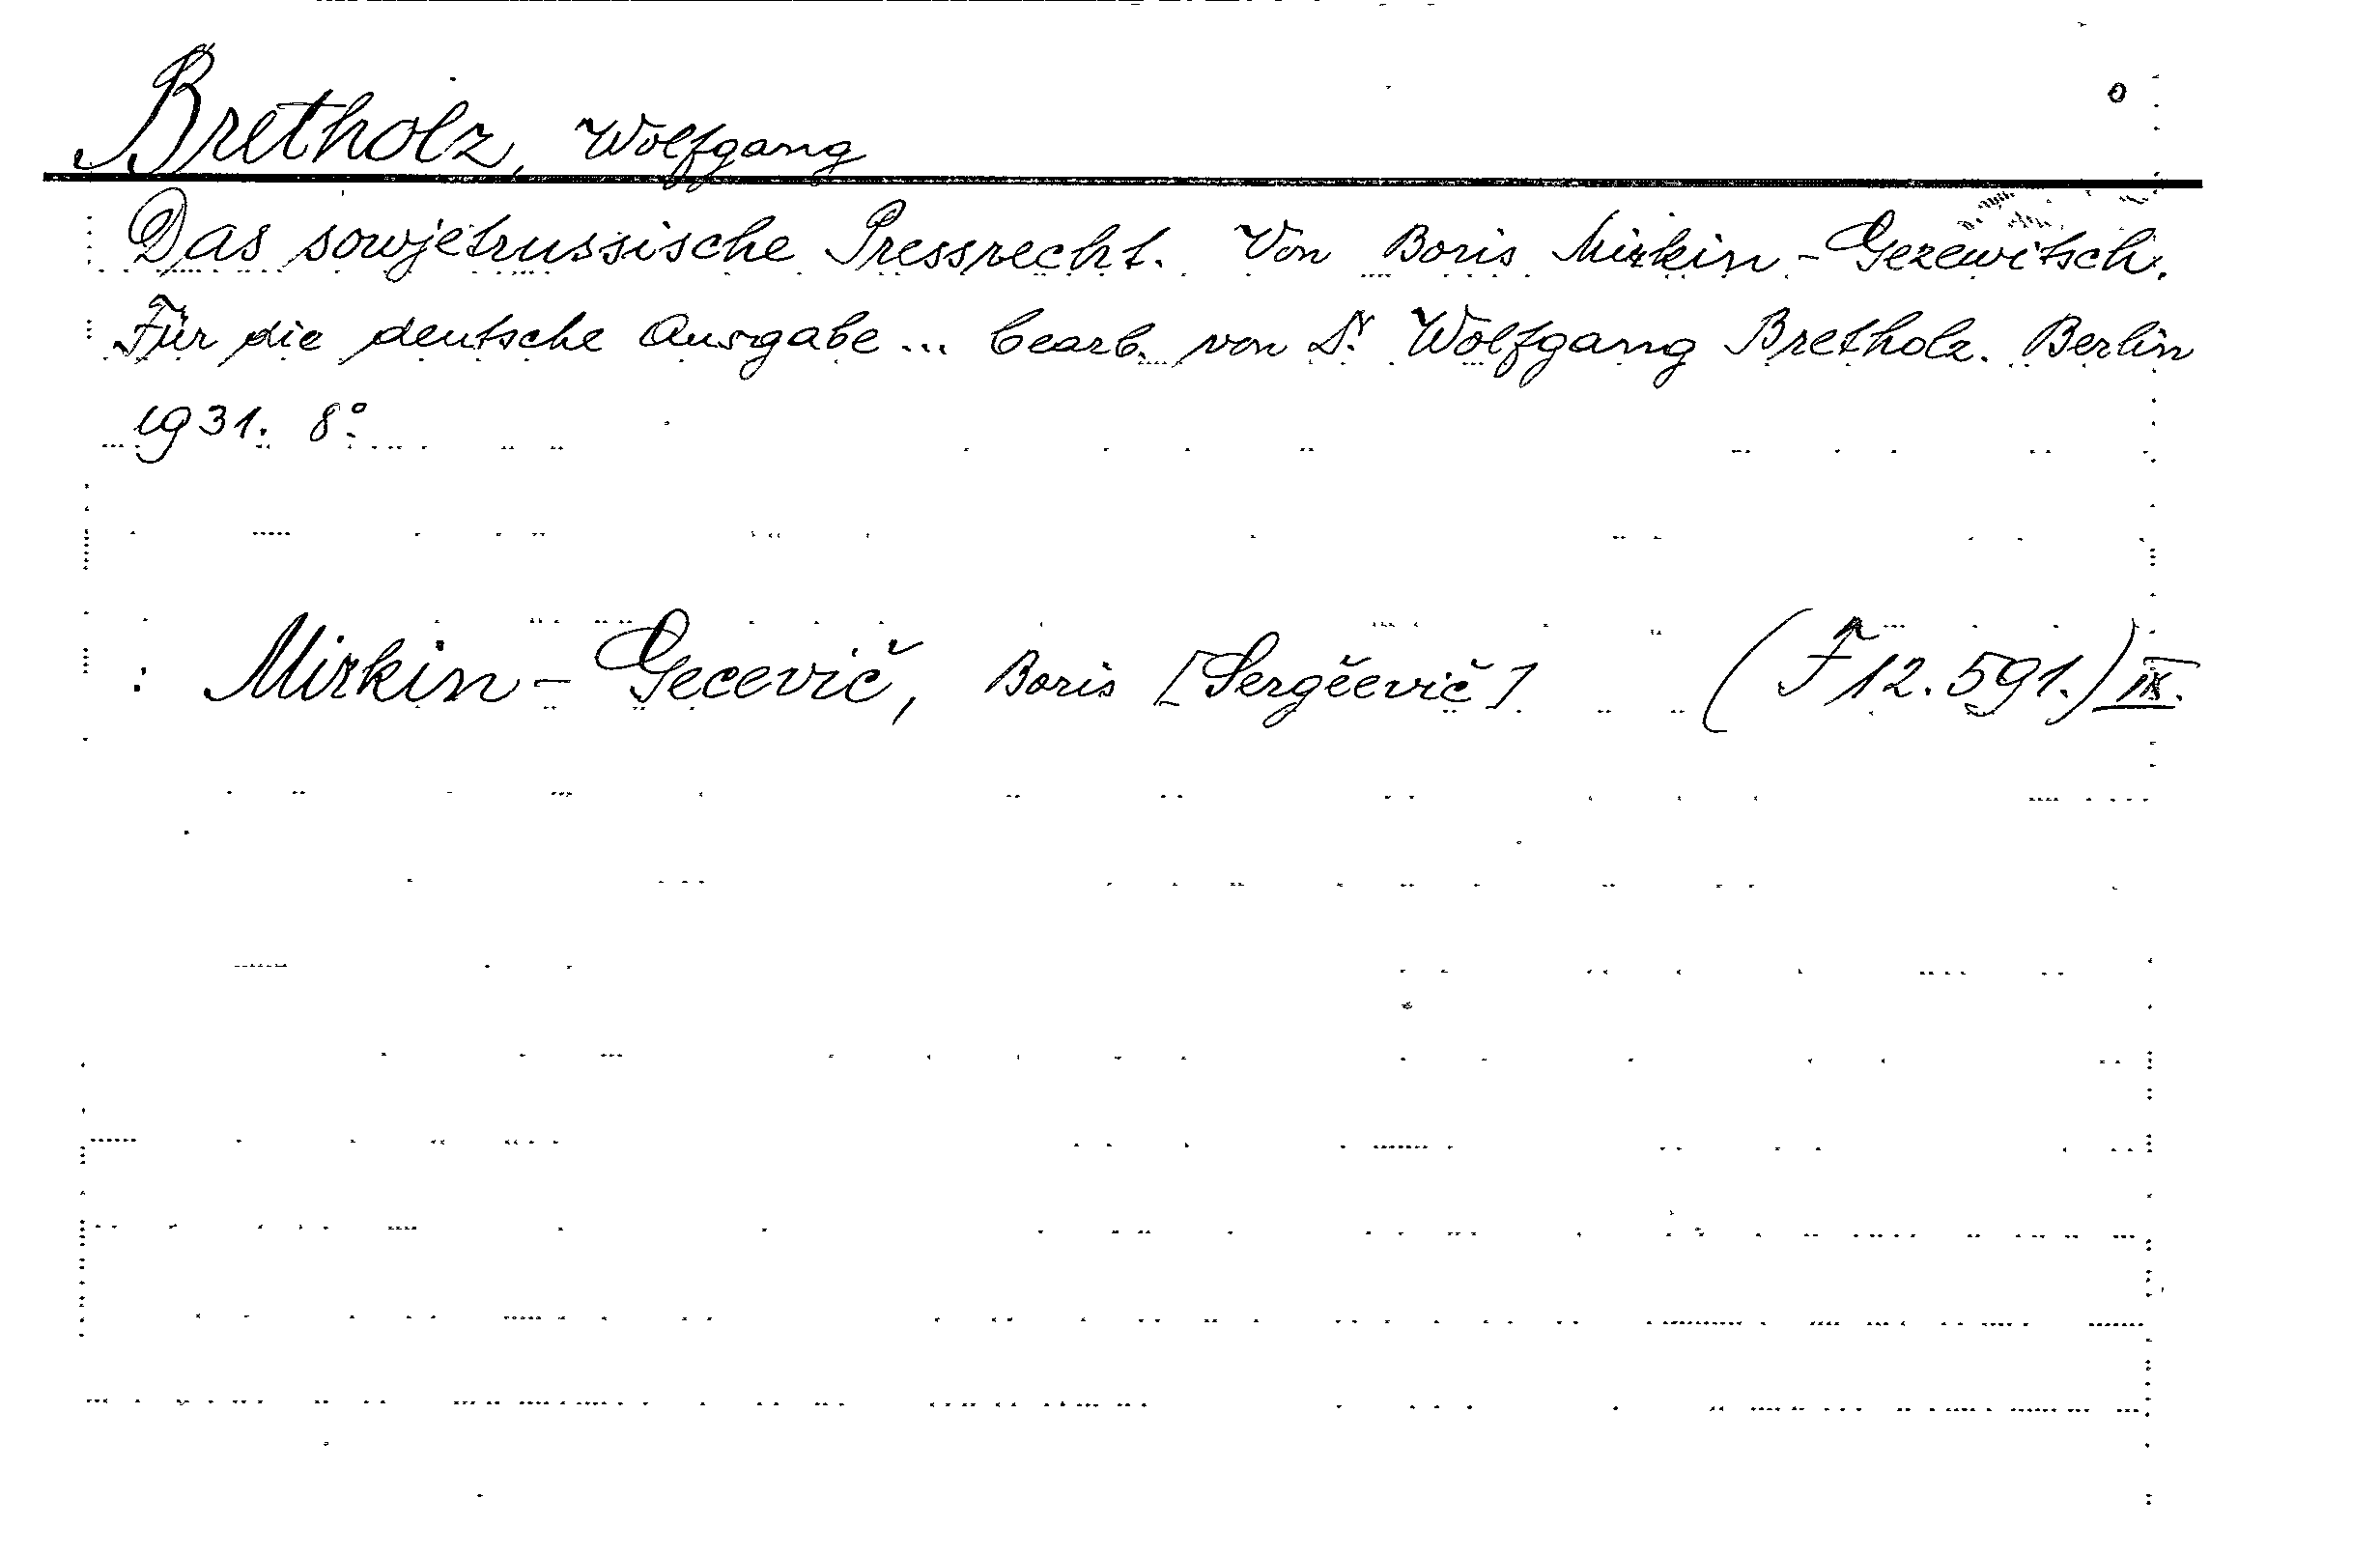 Bretholz, Wolfgang
Das sowjetrussische Pressrecht. Von Boris Mirkin-Gezewitsch.
Für die deutsche Ausgabe... bearb. von Dr. Wolfgang Bretholz. Berlin
1931. 8°.
: Mirkin-Gecevič, Boris [Sergěevič] (F 12.591.) IX.